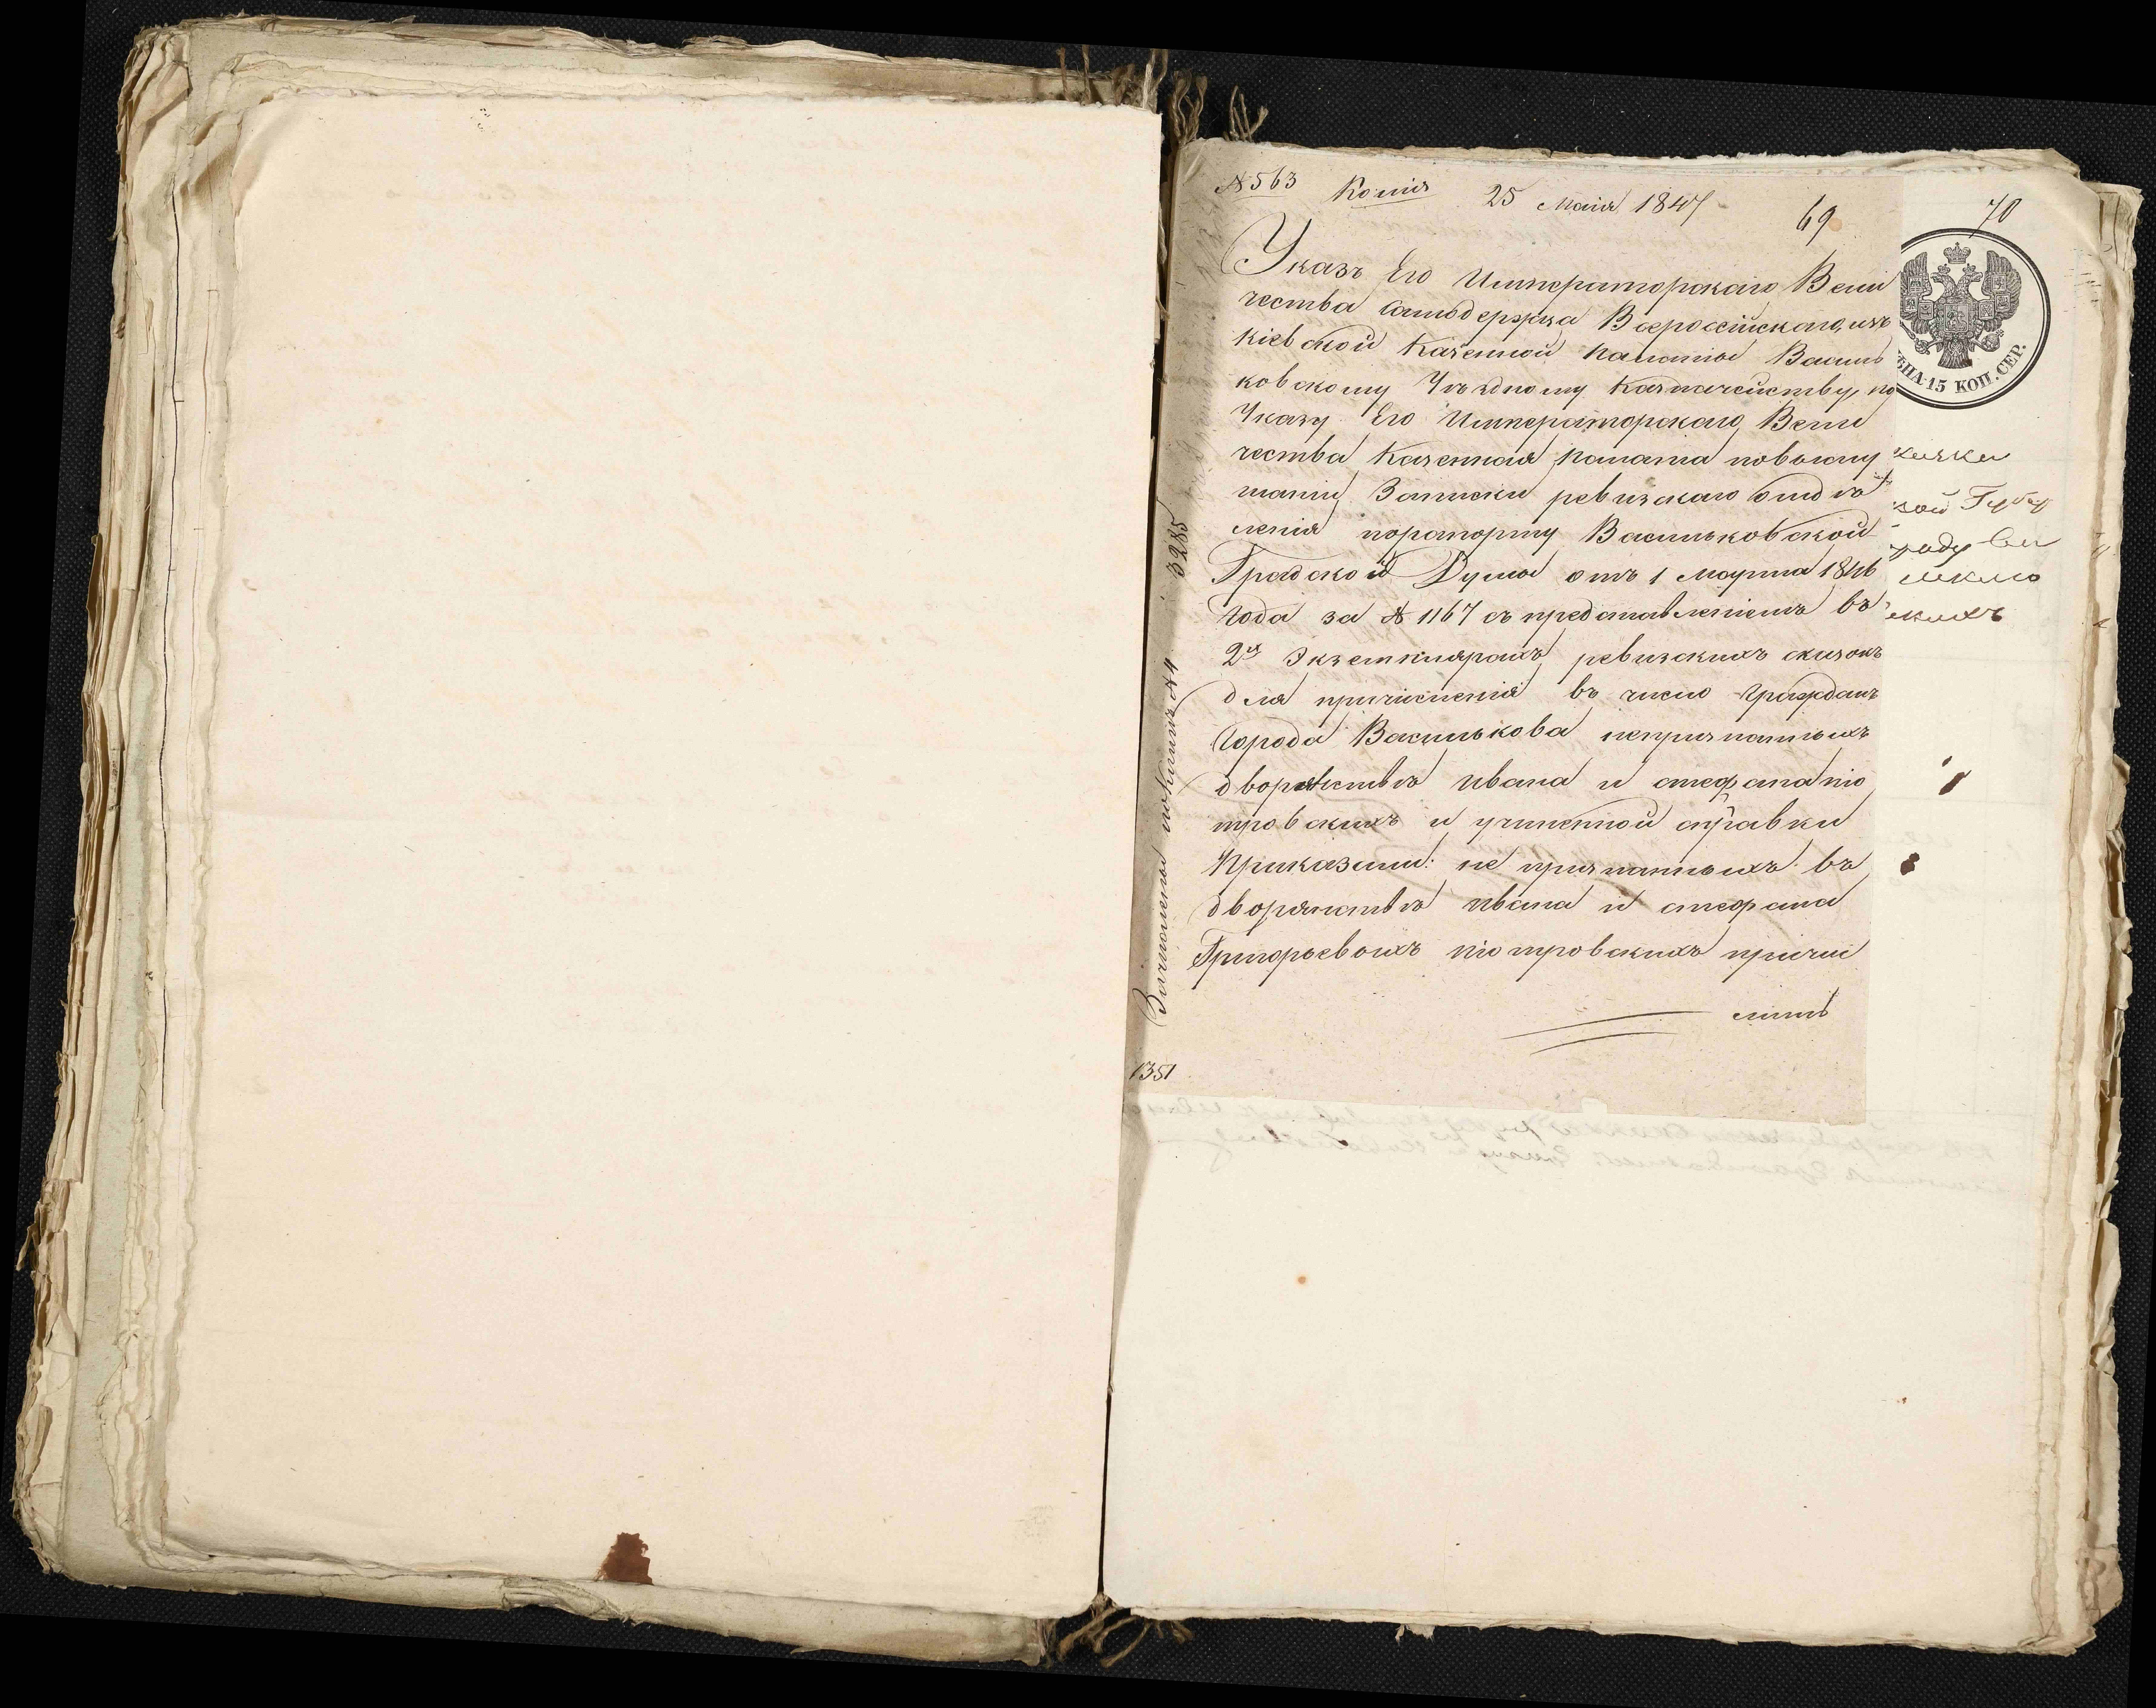 № 563 Копія 25 Маія 1847 69
70
Указъ Его Императорскаго Вели
чества Самодержца Всероссійскаго, изъ
Кіевской Казенной Палаты Василь
ковскому Уѣздному Казначейству, по
Указу Его Императорскаго Вели
чества Казенная Палата повыслу
шаніи Записки ревизскаго отдѣ
ленія порапорту Васильковской
Градской Думы отъ 1 Марта 1846
года за № 1167 съ представленіемъ въ
2хъ Экземплярахъ ревизскихъ сказокъ
для причисленія въ число гражданъ
города Василькова непризнанныхъ
дворянствѣ Ивана и Стефана Пio
тровскихъ и учиненной справки
Приказали: не признанныхъ въ
дворянствѣ Ивана и Стефана
Григорьевыхъ Піотровскихъ причи
слить
3285
1351
ЦѢНА 15 КОП. СЕР.
кой Губер
скихъ